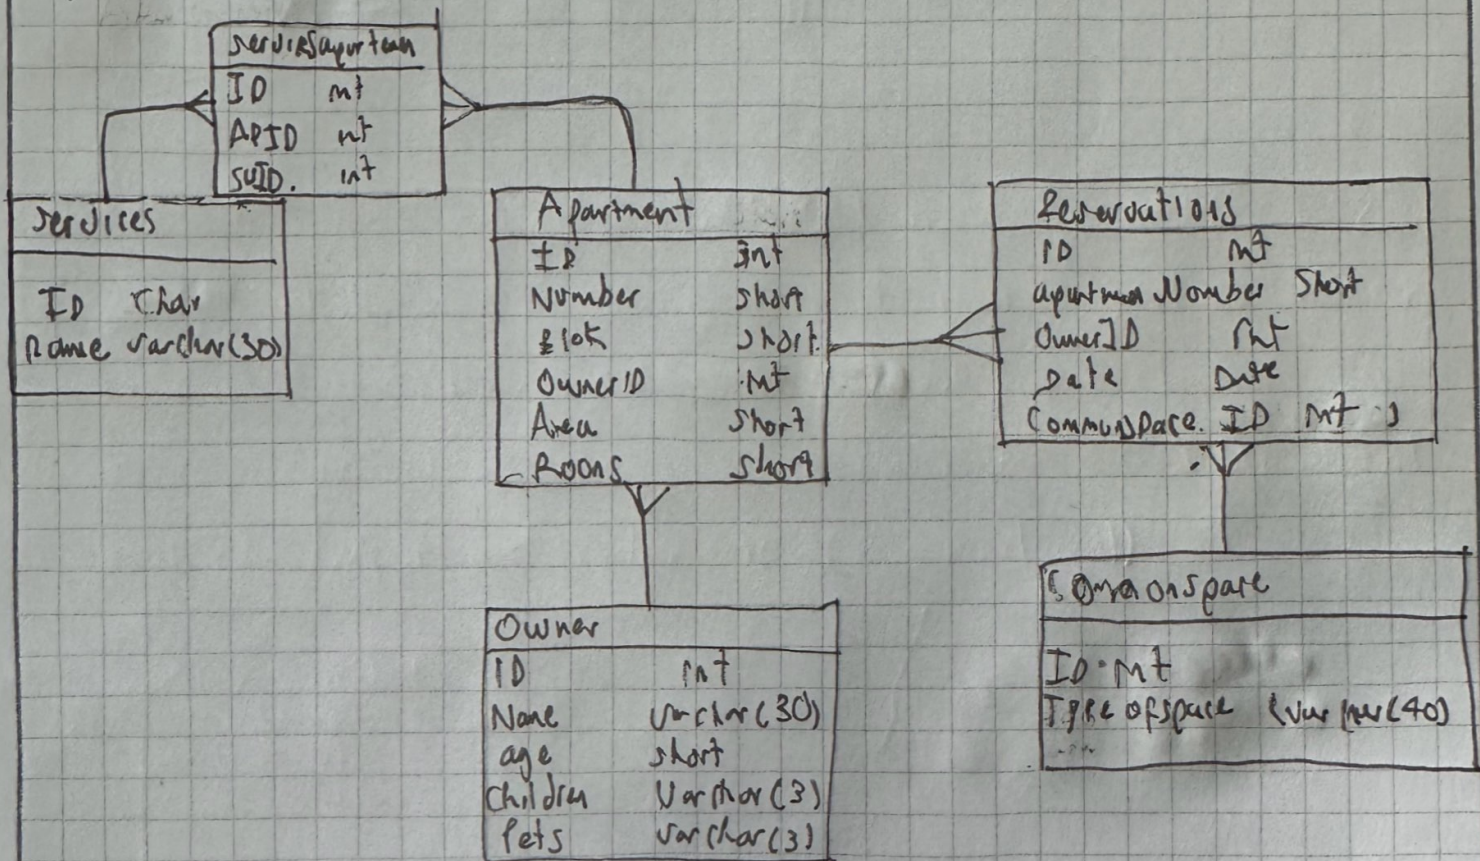 ServicesApartmen
ID int
APID int
SVID. int
Services
ID Char
Name varchar(30)
Apartment
ID int
Number short
Blok short
OwnerID int
Area short
Rooms short
Reservations
ID int
apartmen Number Short
OwnerID int
Date Date
Commonspace. ID int
Owner
ID int
Name varchar(30)
age short
Children Varchar(3)
Pets varchar(3)
Commonspace
ID int
Type of space varchar(40)